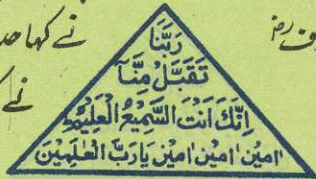 رَبَّنَا
تَقَبَّلْ مِنَّآ
اِنَّكَ اَنْتَ السَّمِيْعُ الْعَلِيْمُ
اٰمِيْن اٰمِيْن اٰمِيْن يَارَبَّ الْعٰلَمِيْنَ
نے کہا
نے